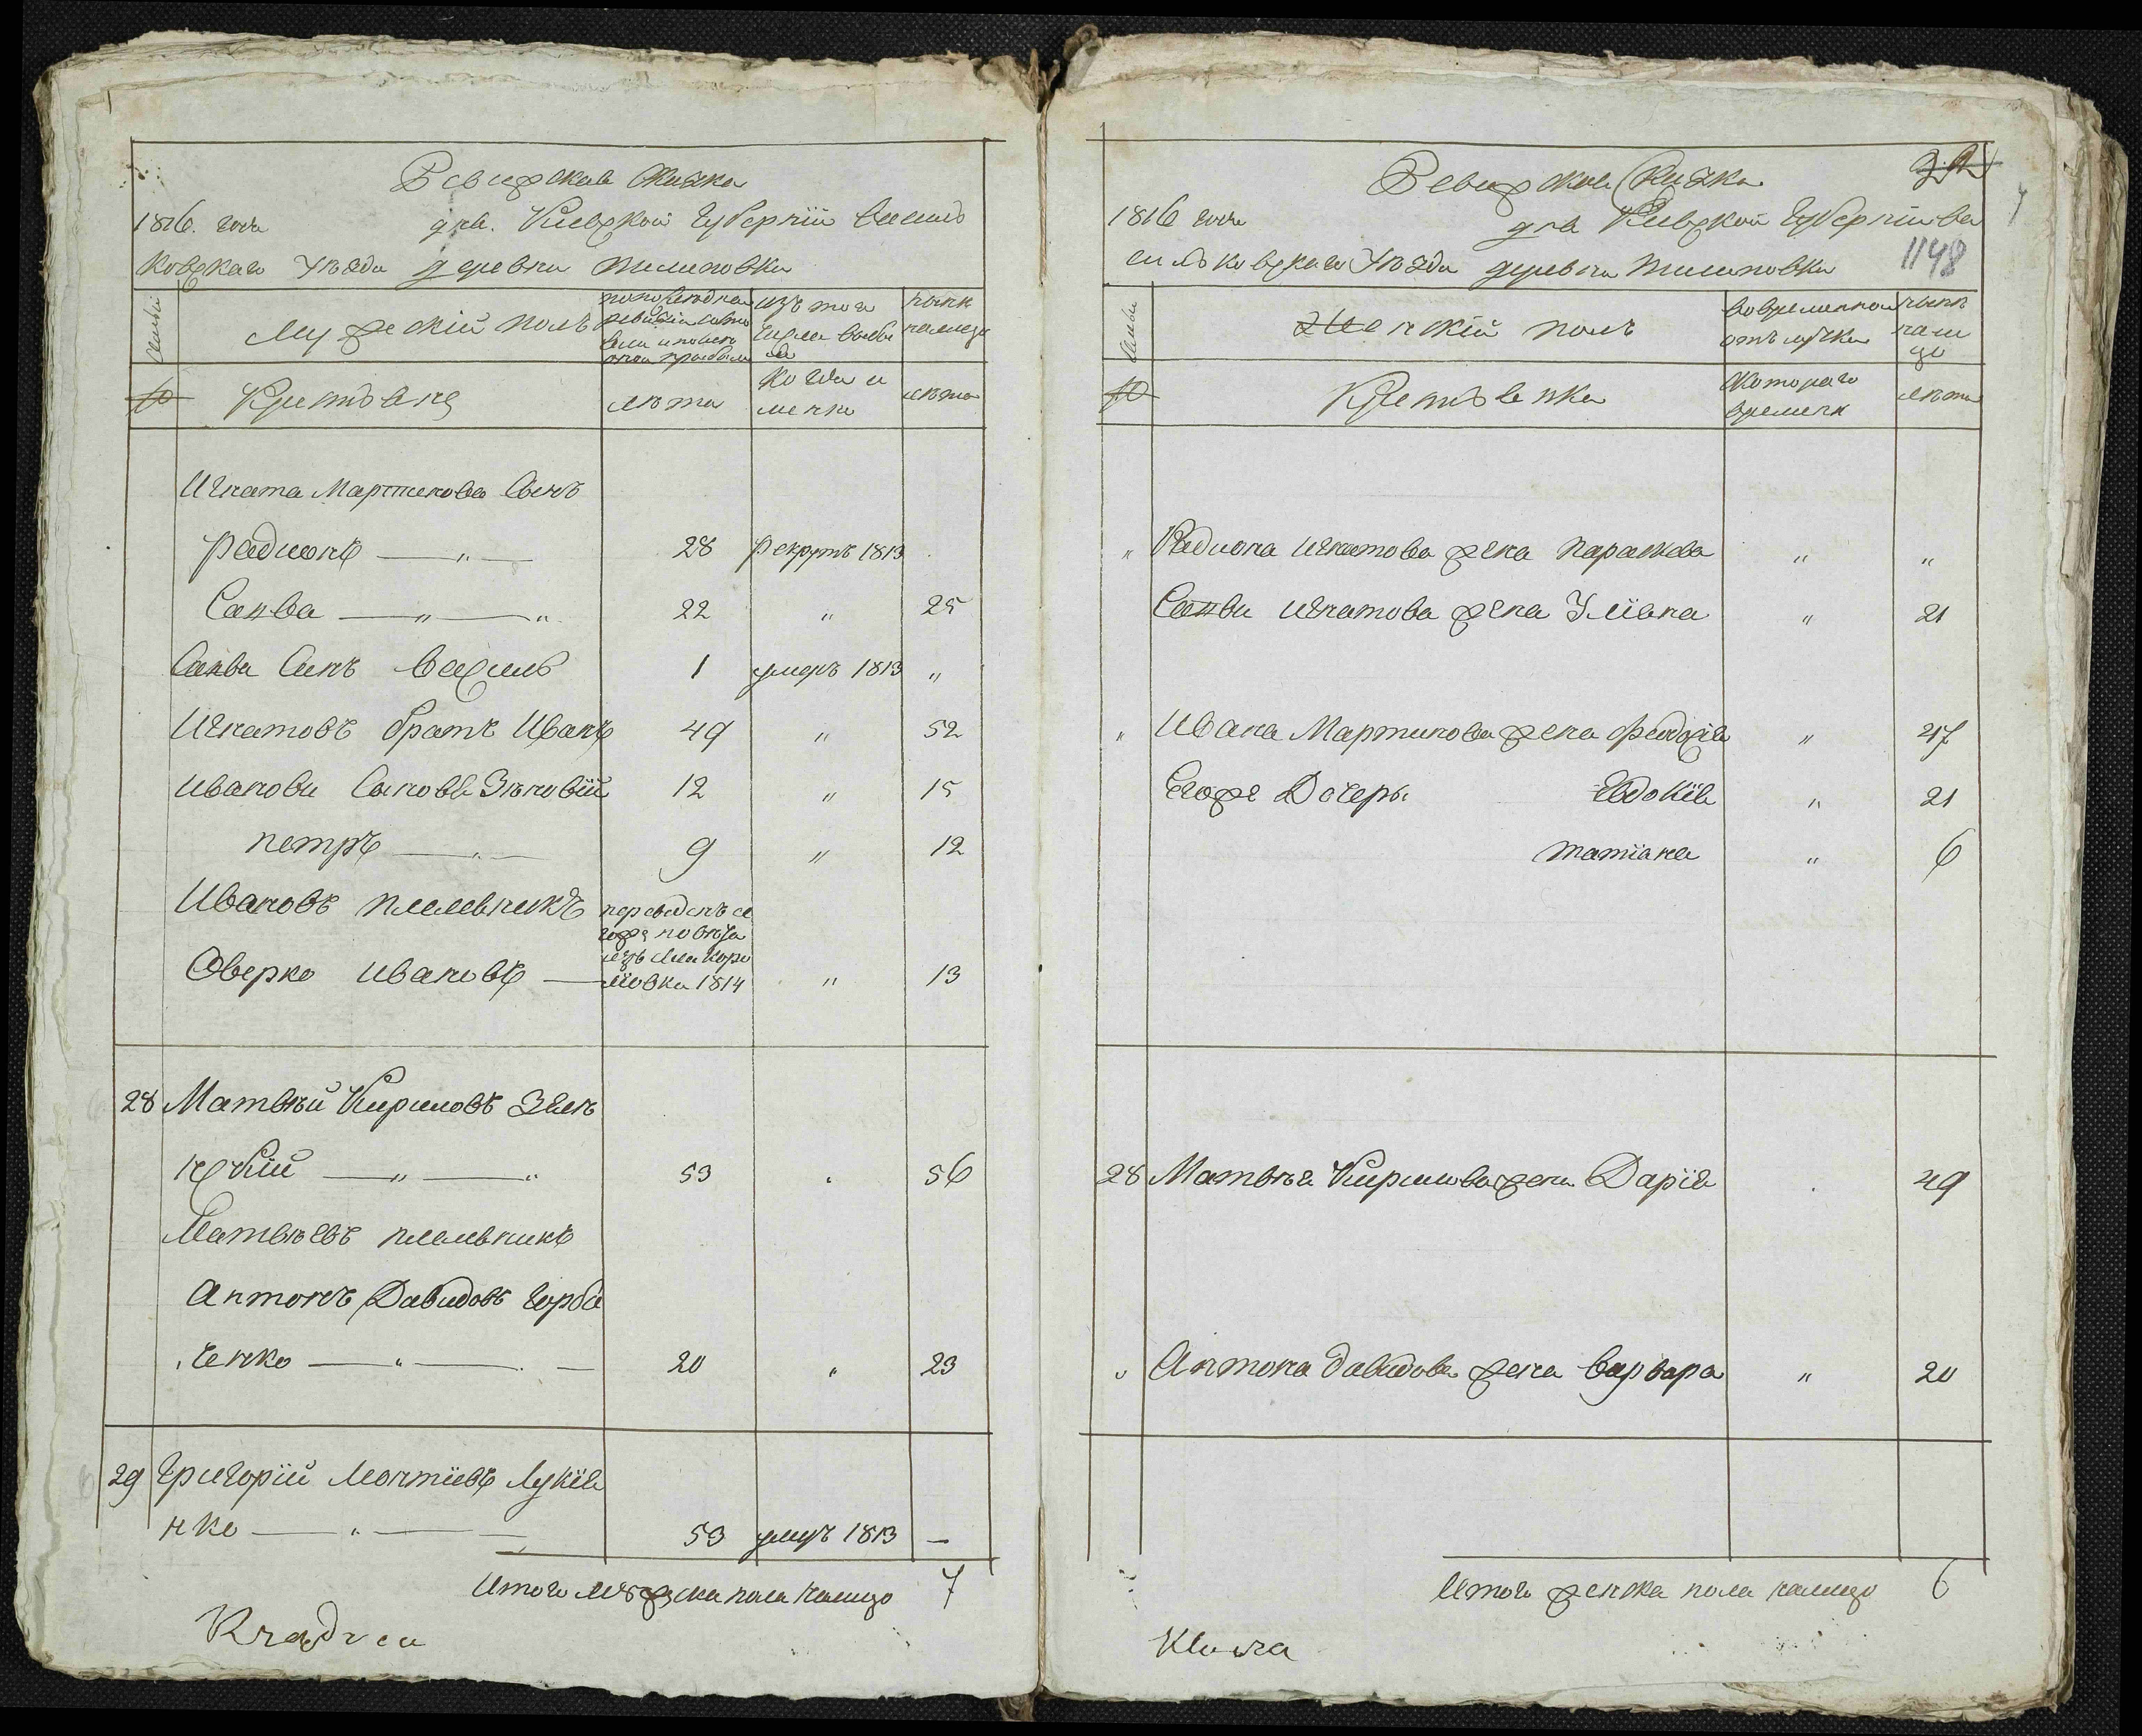 Ревизская сказка
1816. года для. Киевской губернїи василь
ковскаго уѣзда деревни пилиповки
семьи
Мужескїй полъ
по последней ревизїи состояли и после оной прибыли
изъ того числа выбыло
нынѣ налицо
№
Крестьяне
лѣта
когда именно
лѣта
Игната Мартинова Синъ
радионъ — „ — 28 рекрутъ 1813
Савва — „ — „ 22 „ 25
Саввы Синъ василь 1 умеръ 1813 „
Игнатовъ братъ Иванъ 49 „ 52
Иванови Синовья Зѣновїй 12 „ 15
петръ — „ — 9 „ 12
Ивановъ племѣнникъ
переведенъ
изъ
1814
Оверко ивановъ — „ 13
28 Матвѣй Кириловъ Зѣлѣ
нскїй — „ — „ 53 „ 56
Матвѣевъ племѣнникъ
Антонъ Давидовъ горба
ченко — „ — 20 „ 23
29 Григорїй Леонтїевъ Лукїя
нко — „ — 53 умеръ 1813 —
Итого мужеска пола налицо 7
Ревизская Сказка
1816 года для Киевской губернїи ва
сильковскаго уѣзда деревни пилиповки
1148
семьи
Женскїй полъ
во временной отлучке
нынѣ налицо
№
Крестьянки
с котораго времени
лѣта
„ Радиона игнатова жена параскева „ „
Саввы игнатова жена Улїяна „ 21
„ Ивана Мартинова жена феодосїя „ 47
Егоже Дочеры Евдокїя „ 21
татїана „ 6
28 Матвѣя Кирилова жена Дарїя 49
„ Антона давидова жена варвара „ 20
Итого женска пола налицо 6